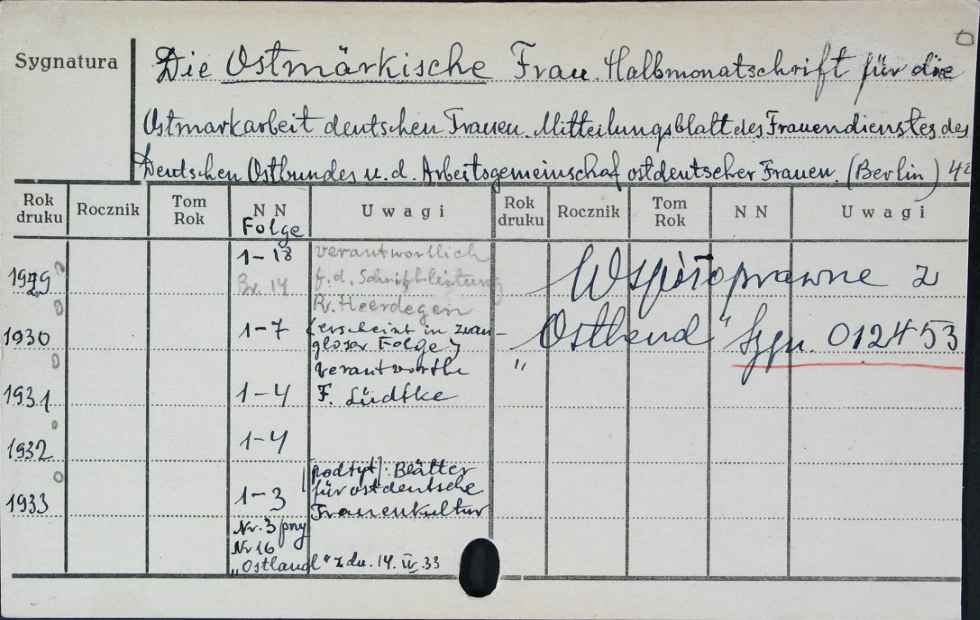 Sygnatura
Die Ostmärkische Frau. Halbmonatschrift für die
Ostmarkarbeit deutschen Frauen. Mitteilungsblatt des Frauendienstes des
Deutschen Ostbundes u. d. Arbeitsgemeinschaf ostdeutscher Frauen. (Berlin) 4º
Rok druku Rocznik Tom Rok N N Uwagi Rok druku Rocznik Tom Rok N N Uwagi
Folge
1929 1-18 verantwortlich
Br. 14 f. d. Schriftleitung
R. Heerdegen
Współoprawne z
1930 1-7 (erscheint in zwan-
gloser Folge)
"Ostland" Sygn. 012453
verantwortli
1931 1-4 F. Lüdtke
1932 1-4
[podtyt]: Blätter
1933 1-3 für ostdeutsche
Frauenkultur
Nr. 3 przy
Nr 16
"Ostland" z dn. 14. IV. 33